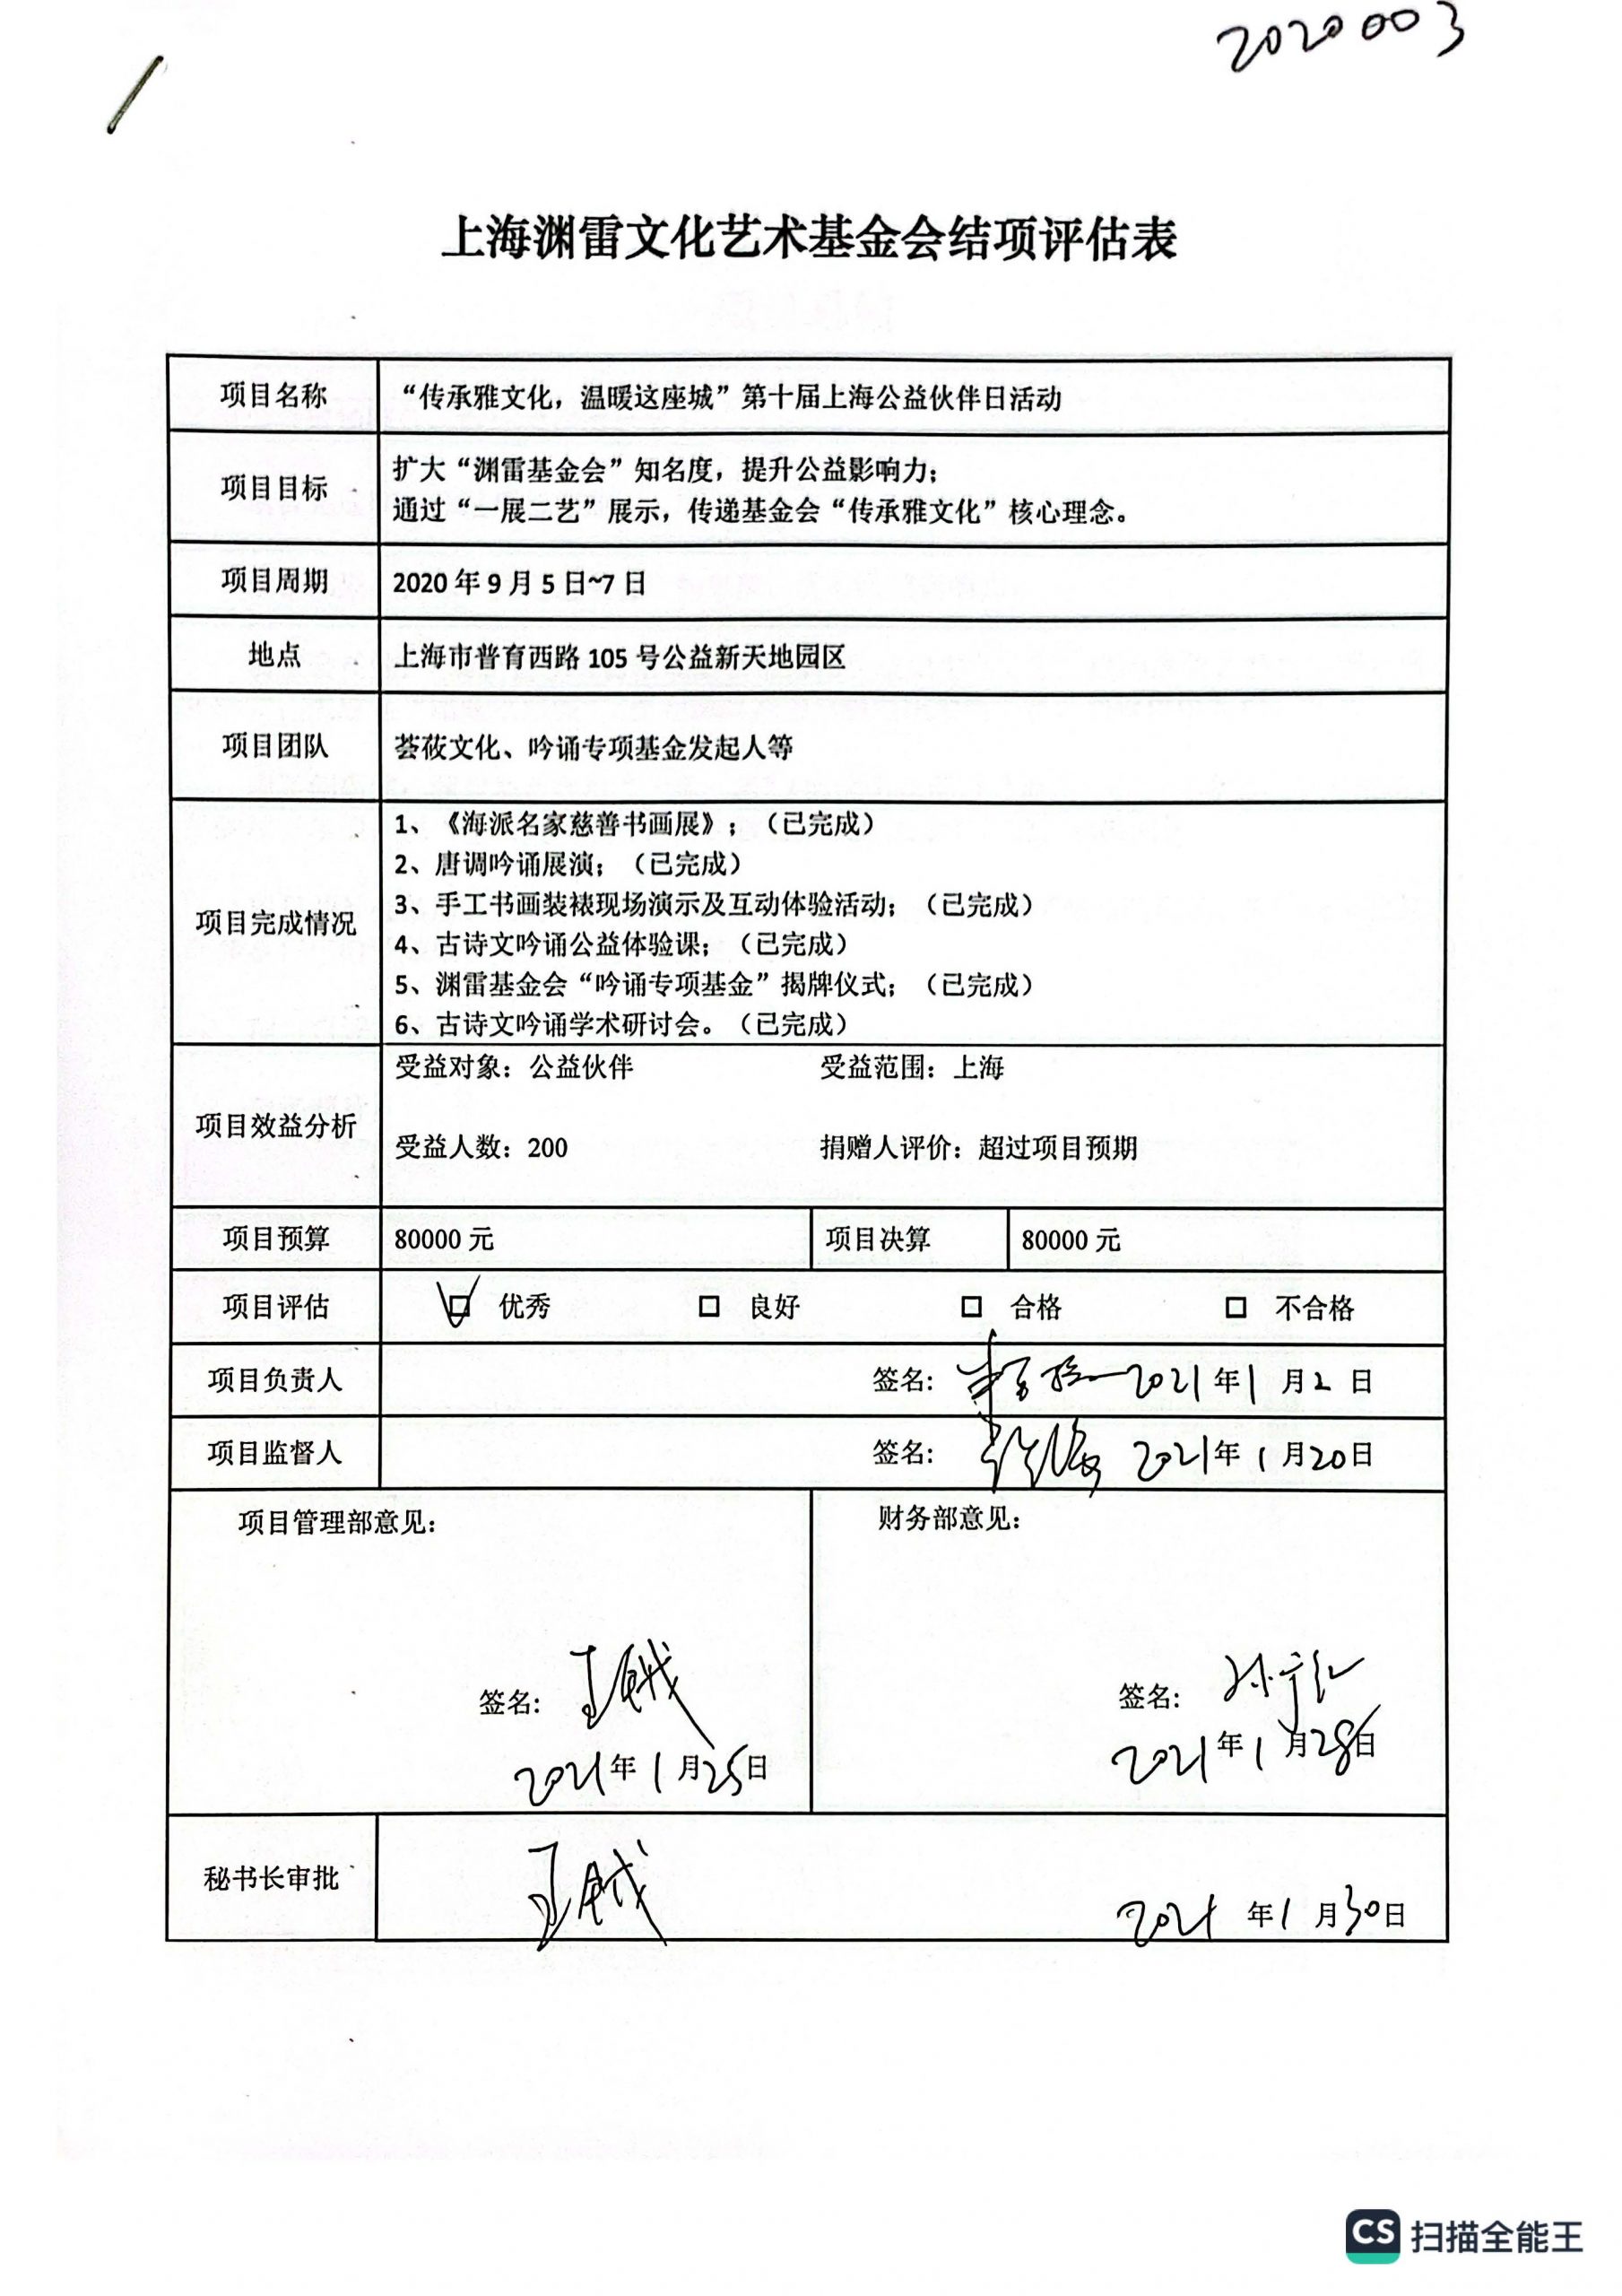 2020003
上海渊雷文化艺术基金会结项评估表
项目名称 “传承雅文化，温暖这座城”第十届上海公益伙伴日活动
项目目标 扩大“渊雷基金会”知名度，提升公益影响力；
通过“一展二艺”展示，传递基金会“传承雅文化”核心理念。
项目周期 2020 年 9 月 5 日~7 日
地点 上海市普育西路 105 号公益新天地园区
项目团队 荟莜文化、吟诵专项基金发起人等
项目完成情况
1、《海派名家慈善书画展》；（已完成）
2、唐调吟诵展演；（已完成）
3、手工书画装裱现场演示及互动体验活动；（已完成）
4、古诗文吟诵公益体验课；（已完成）
5、渊雷基金会“吟诵专项基金”揭牌仪式；（已完成）
6、古诗文吟诵学术研讨会。（已完成）
项目效益分析
受益对象：公益伙伴 受益范围：上海
受益人数：200 捐赠人评价：超过项目预期
项目预算 80000 元 项目决算 80000 元
项目评估 优秀 良好 合格 不合格
项目负责人 签名： 2021 年 1 月 2 日
项目监督人 签名： 2021 年 1 月 20 日
项目管理部意见： 财务部意见：
签名： 签名：
2021 年 1 月 25 日 2021 年 1 月 28 日
秘书长审批 2021 年 1 月 30 日
CS 扫描全能王